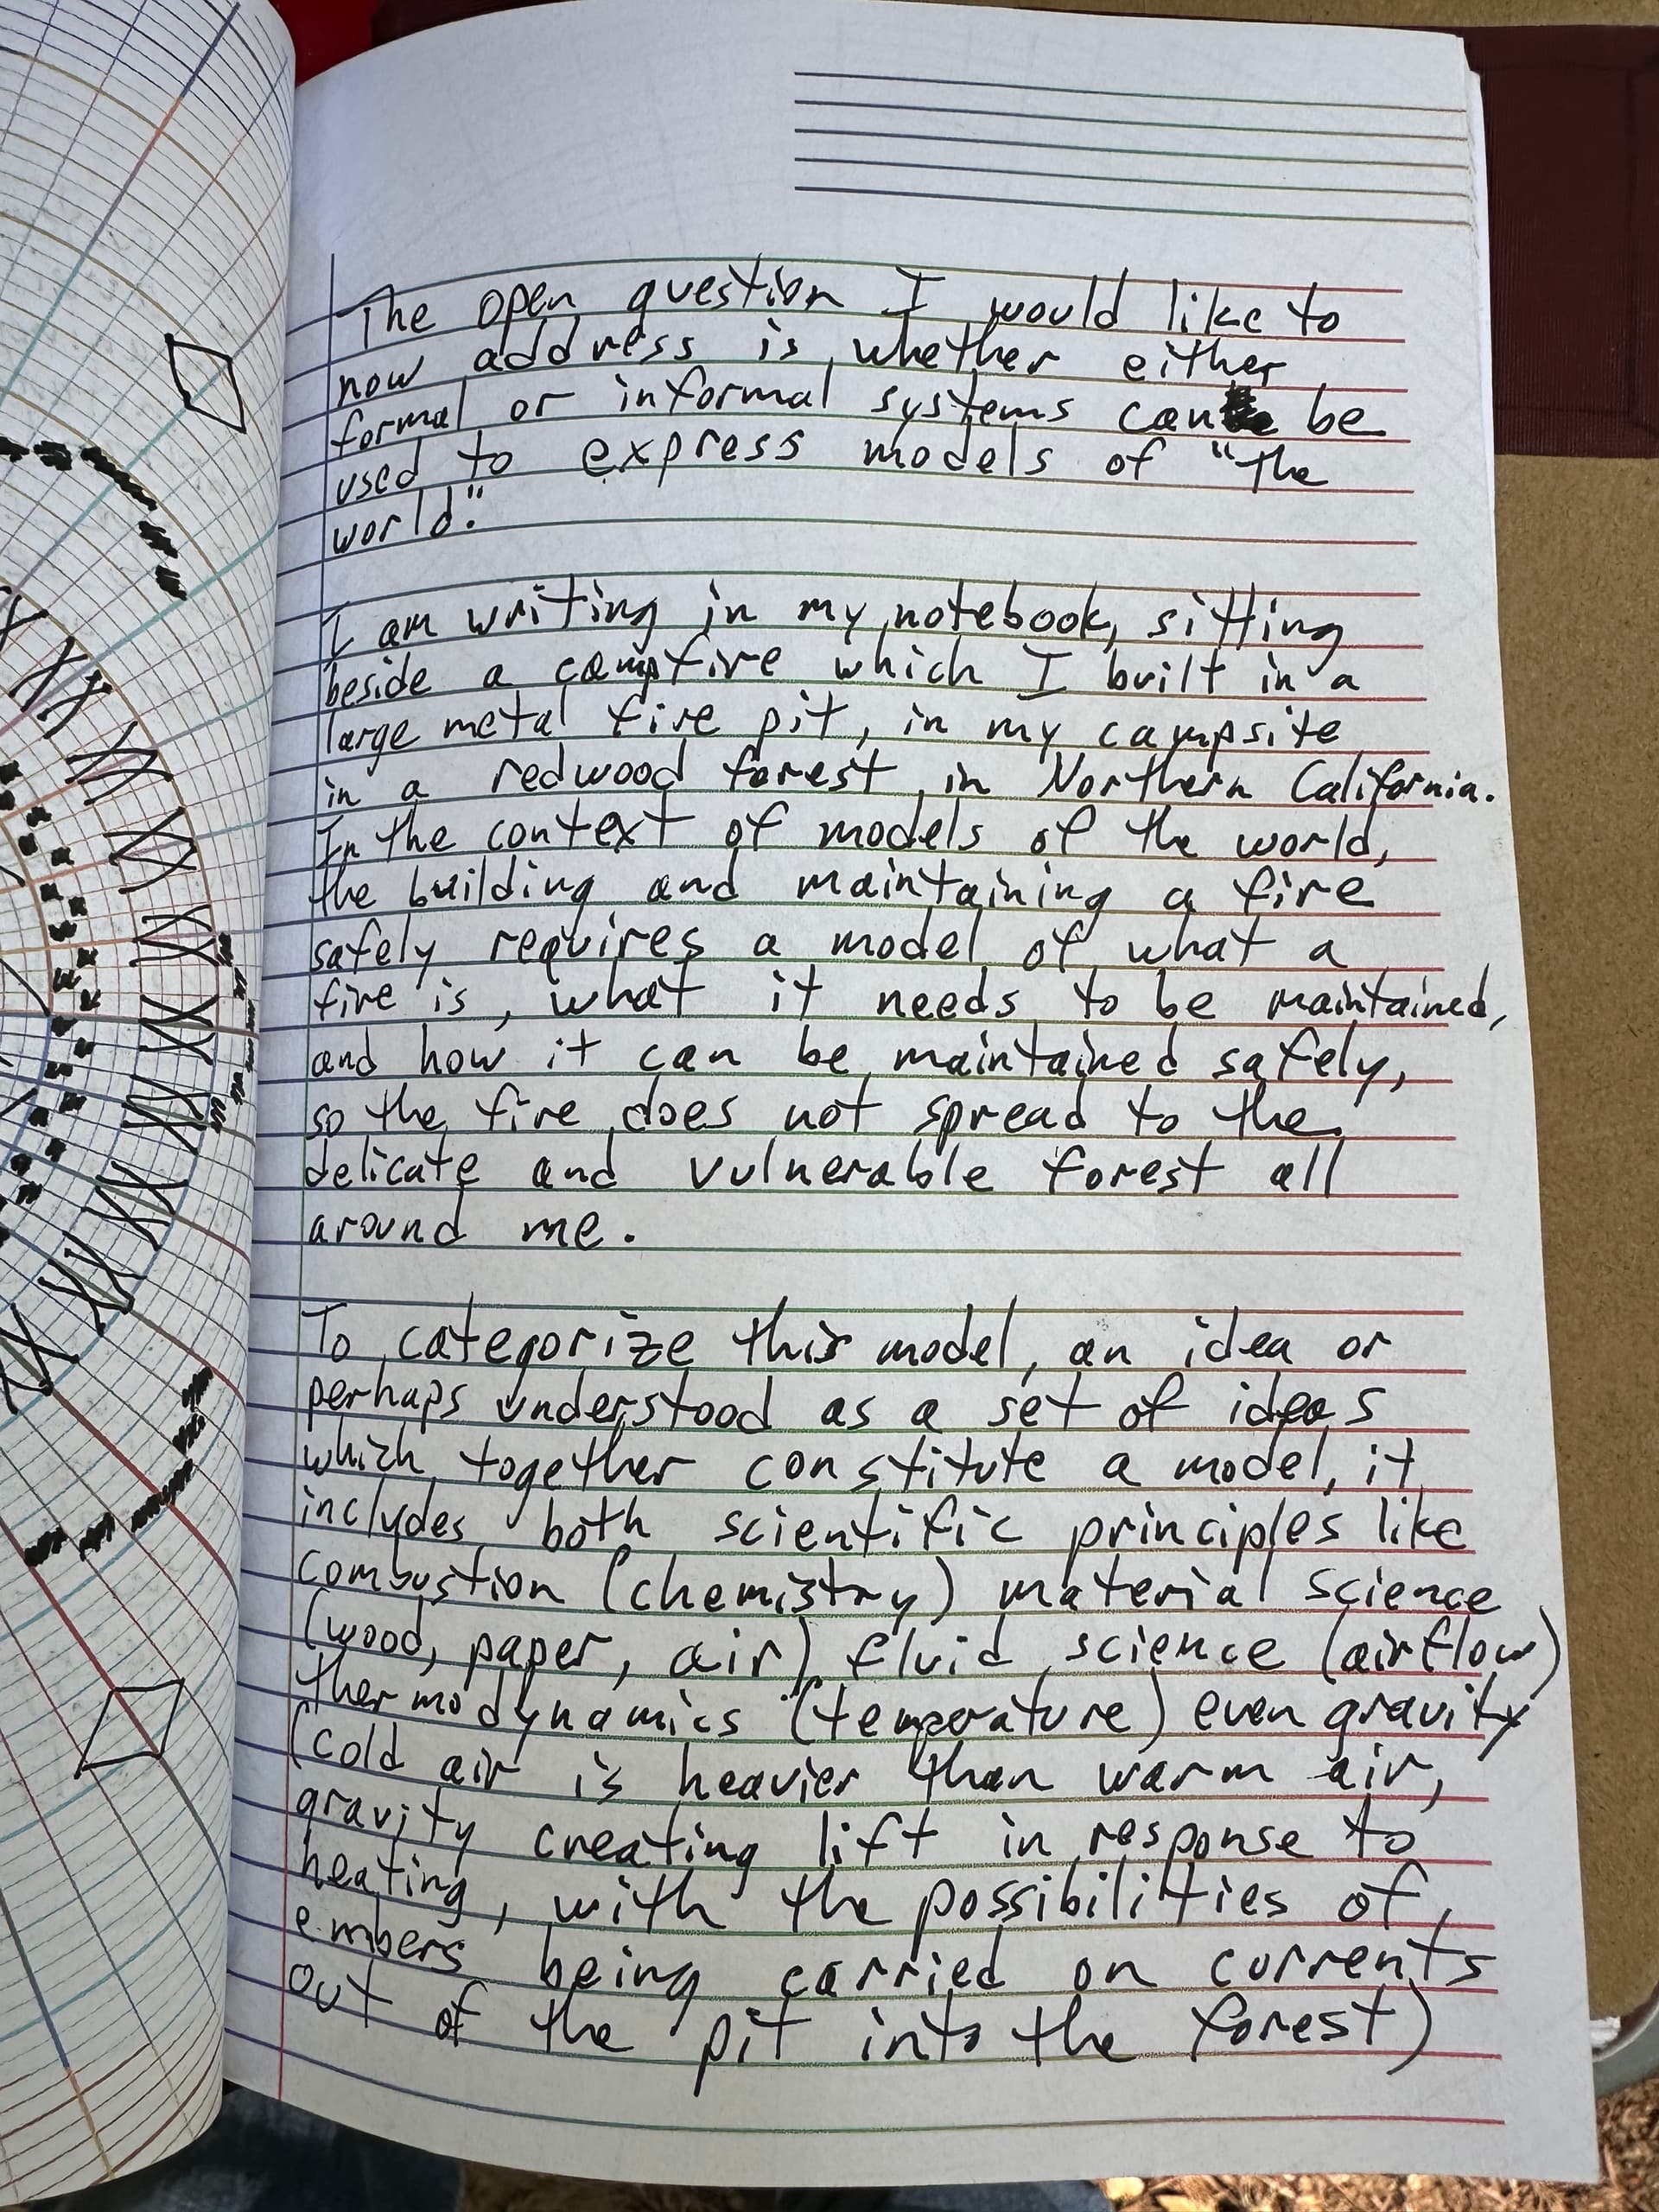 The open question I would like to
now address is whether either
formal or informal systems can be
used to express models of "the
world."
I am writing in my notebook, sitting
beside a campfire which I built in a
large metal fire pit, in my campsite
in a redwood forest in Northern California.
In the context of models of the world,
the building and maintaining a fire
safely requires a model of what a
fire is, what it needs to be maintained,
and how it can be maintained safely,
so the fire does not spread to the
delicate and vulnerable forest all
around me.
To categorize this model, an idea or
perhaps understood as a set of ideas
which together constitute a model, it
includes both scientific principles like
combustion (chemistry) material science
(wood, paper, air) fluid science (airflow)
thermodynamics (temperature) even gravity
(cold air is heavier than warm air,
gravity creating lift in response to
heating, with the possibilities of
embers being carried on currents
out of the pit into the forest)